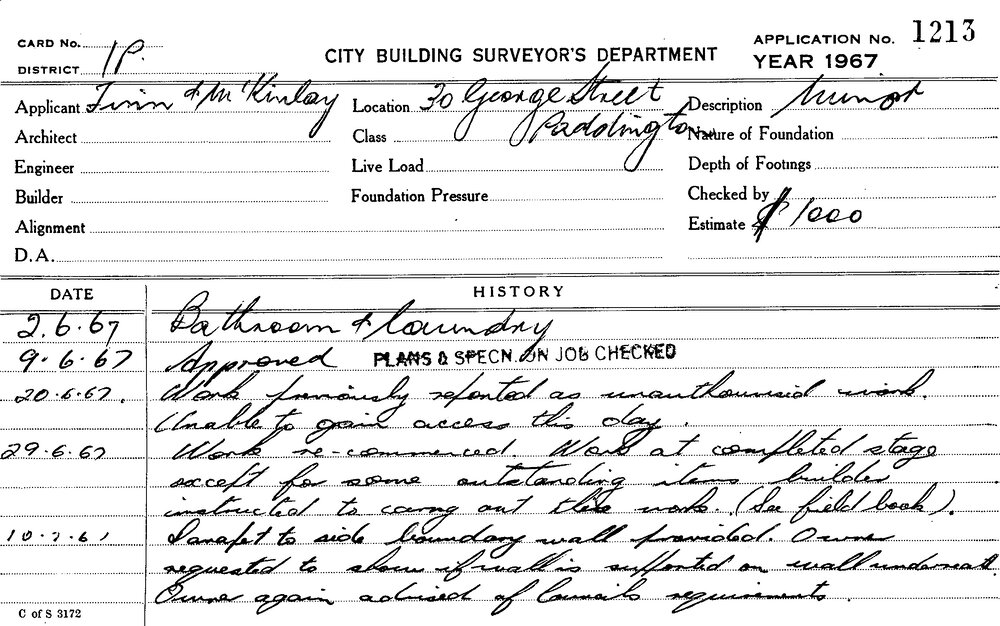 CARD No. 1P.
DISTRICT
CITY BUILDING SURVEYOR'S DEPARTMENT
APPLICATION No. 1213
YEAR 1967
Applicant & McKinlay Location 30 George Street Description Minor
Architect Class Paddington Nature of Foundation
Engineer Live Load Depth of Footings
Builder Foundation Pressure Checked by
Alignment Estimate $ 1000
D.A.
DATE HISTORY
2.6.67 Bathroom & laundry
9.6.67 Approved PLANS & SPECN. ON JOB CHECKED
20.6.67. Work previously reported as unauthourisid work.
Unable to gain access this day.
29.6.67 Work re-commenced. Work at completed stage
except for some outstanding items builder
instructed to carry out this work. (See field book).
10.7.67 Parapet to side boundary wall provided. Owner
requested to show if wall is supported on wall underneath.
Owner again advised of Councils requirements.
C of S 3172